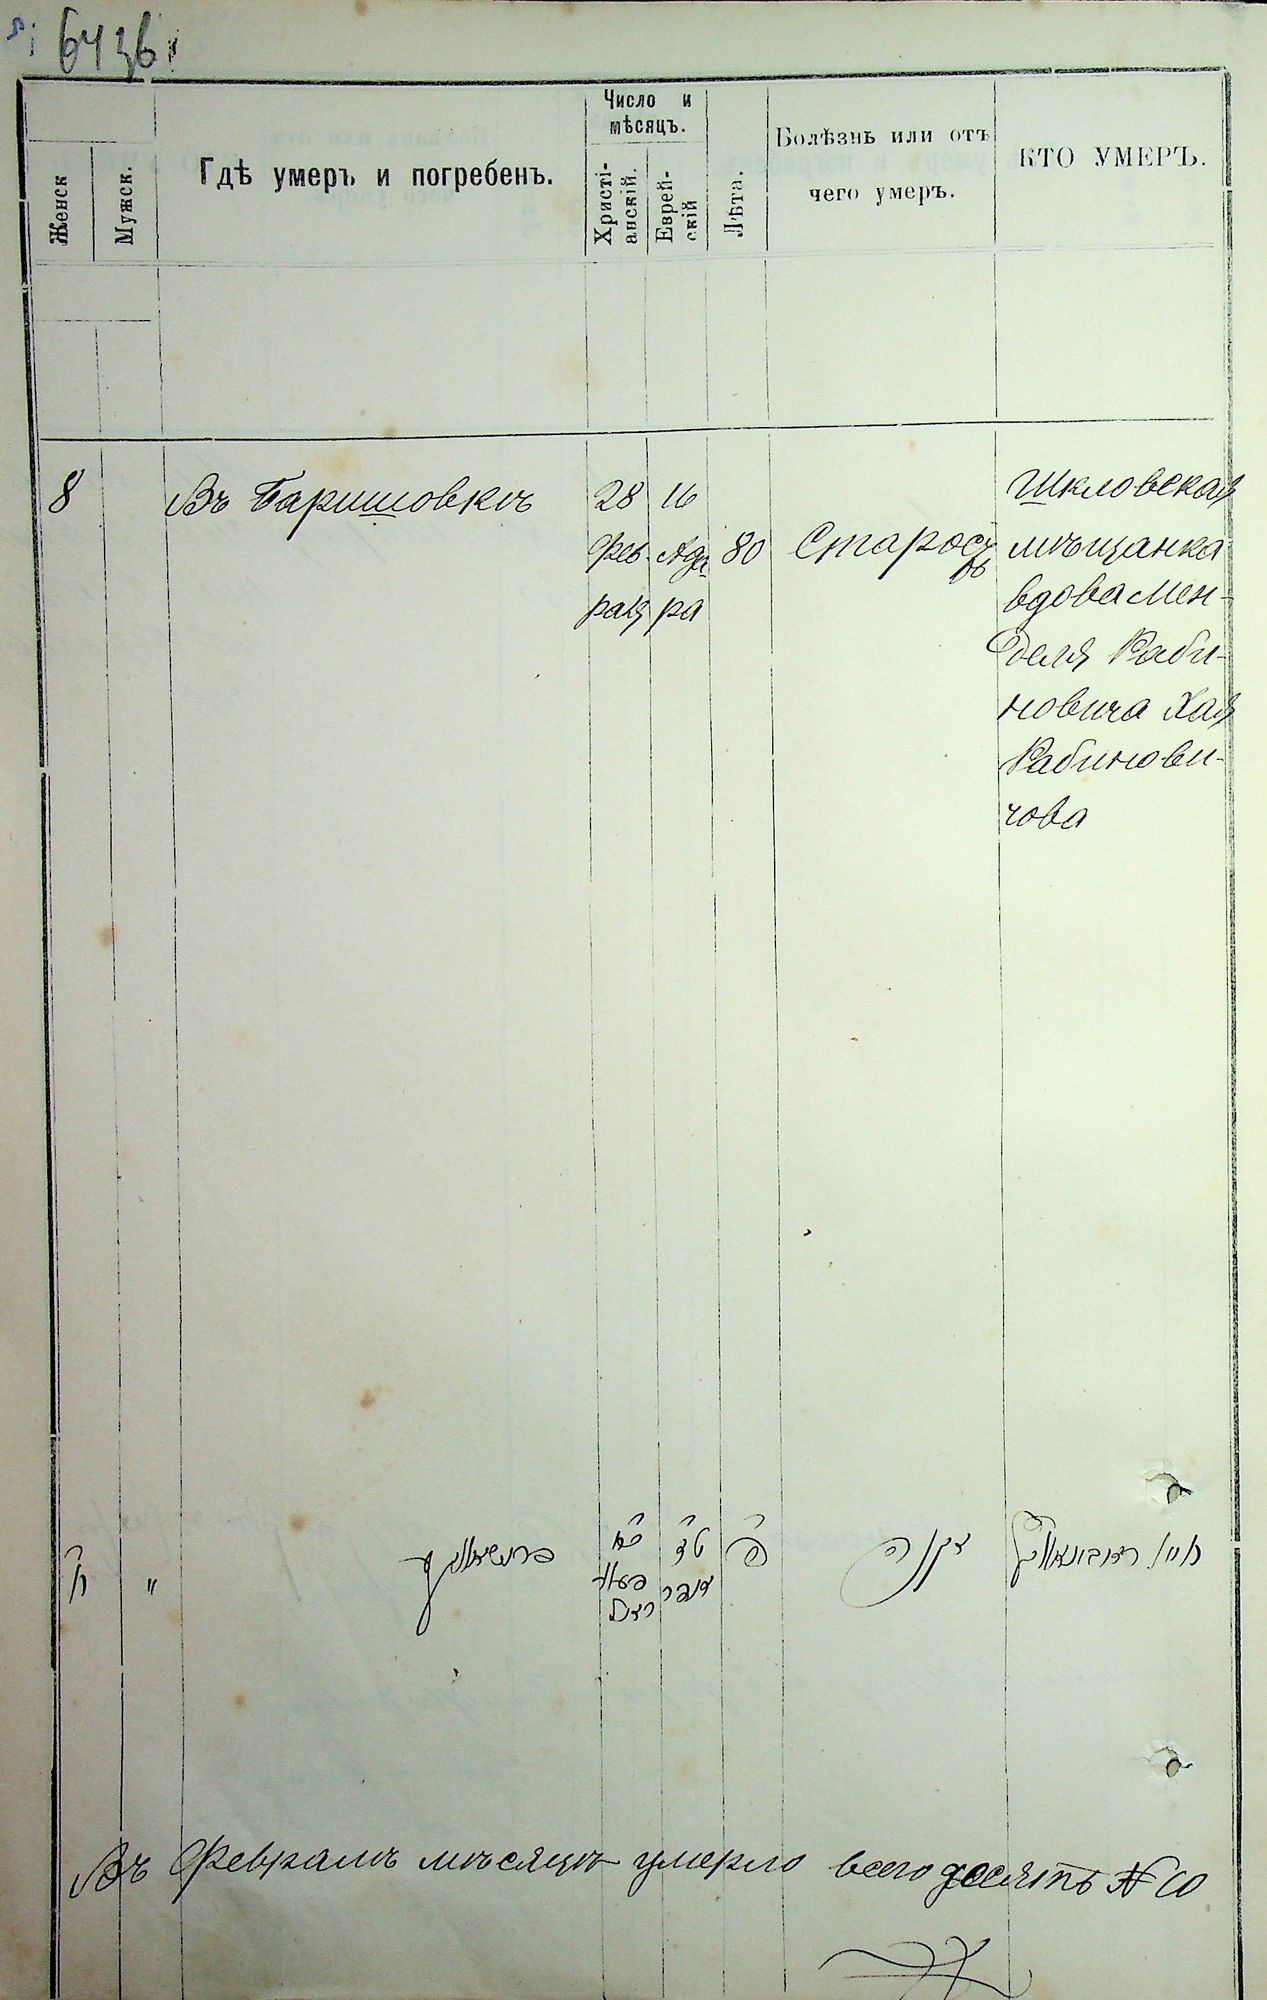 Женск
Мужск.
Гдѣ умеръ и погребенъ.
Число и
мѣсяцъ.
Христі-
анскій.
Еврей-
скій
Лѣта.
Болѣзнь или отъ
чего умеръ.
КТО УМЕРЪ.
8
Въ Баришовкѣ
28
Фев-
раля
16
Ада
ра
80
Старость
Шкловская
мѣщанка
вдова Мен-
деля Раби-
новича Хая
Рабинови-
чова
ח
"
פ
זקנה
חיי ראבינאוויץ
Въ Февралѣ мѣсяцѣ умерло всего десять № 10